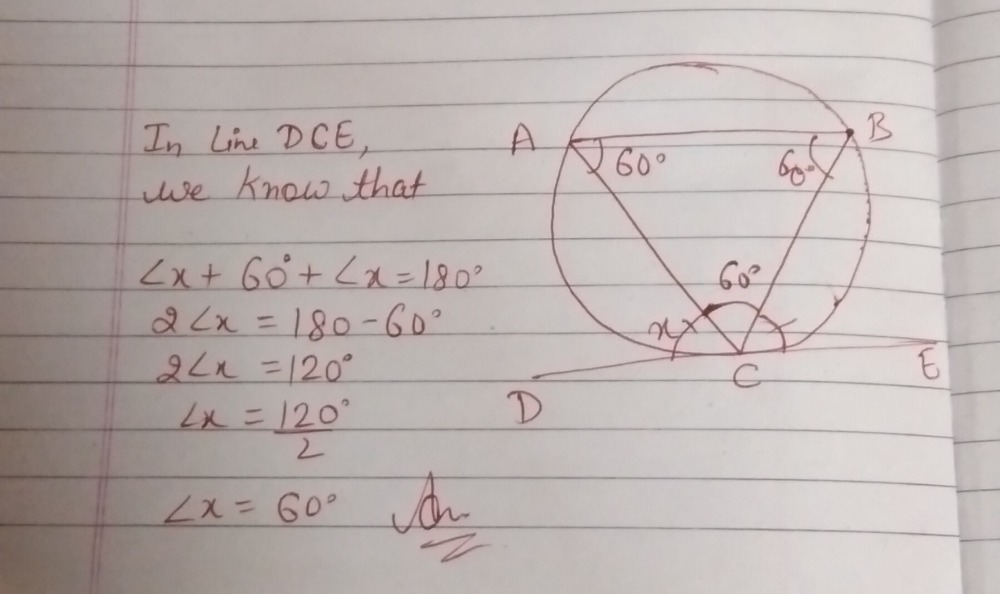 In Line DCE,
we know that
∠x + 60° + ∠x = 180°
2∠x = 180 - 60°
2∠x = 120°
∠x = 120°
2
∠x = 60° Ans
A
B
60°
60°
60°
x
C
D
E